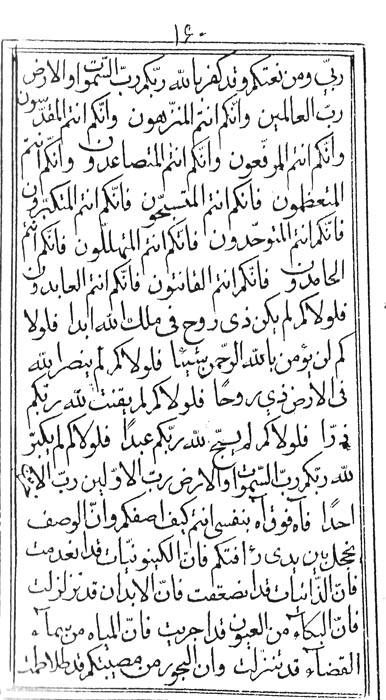 ١٤٠
ربّي ومن نعتكم وقد كفر بالله ربّكم ربّ السّموات والارض
ربّ العالمين وانّكم انتم المنزّهون وانّكم انتم المقدّسون
وانّكم انتم المرفّعون وانّكم انتم المتصاعدون وانّكم انتم
المتعظّمون فانّكم انتم المتسبّحون فانّكم انتم المتكبّرون
فانّكم انتم المتوحّدون فانّكم انتم المتهلّلون فانّكم انتم
الحامدون فانّكم انتم القانتون فانّكم انتم العابدون
فلولاكم لم يكن ذی روح فی ملك الله ابدا فلولا
كم لن يؤمن بالله الرّحمن شيئا فلولاكم لم ينصر الله
فی الارض ذی روحا فلولاكم لم يقنت لله ربّكم
ذرّا فلولاكم لم يسبّح لله ربّكم عبدا فلولاكم لم يكبّر
لله ربّكم ربّ السّموات والارض ربّ الاوّلين ربّ
احدا فآه فوق آه بنفسی انتم كيف اصفكم وانّ الوصف
يخجل بين يدی رافتكم فانّ الكينونيّات قد انعدمت
فانّ الذّاتيات قد انصعقت فانّ الابدان قد تزلزلت
فانّ البكاء من العيون قد اجريت فانّ المياه من سماء
القضاء قد تنزلت وان البحور من مصيبتكم قد تلاطمت